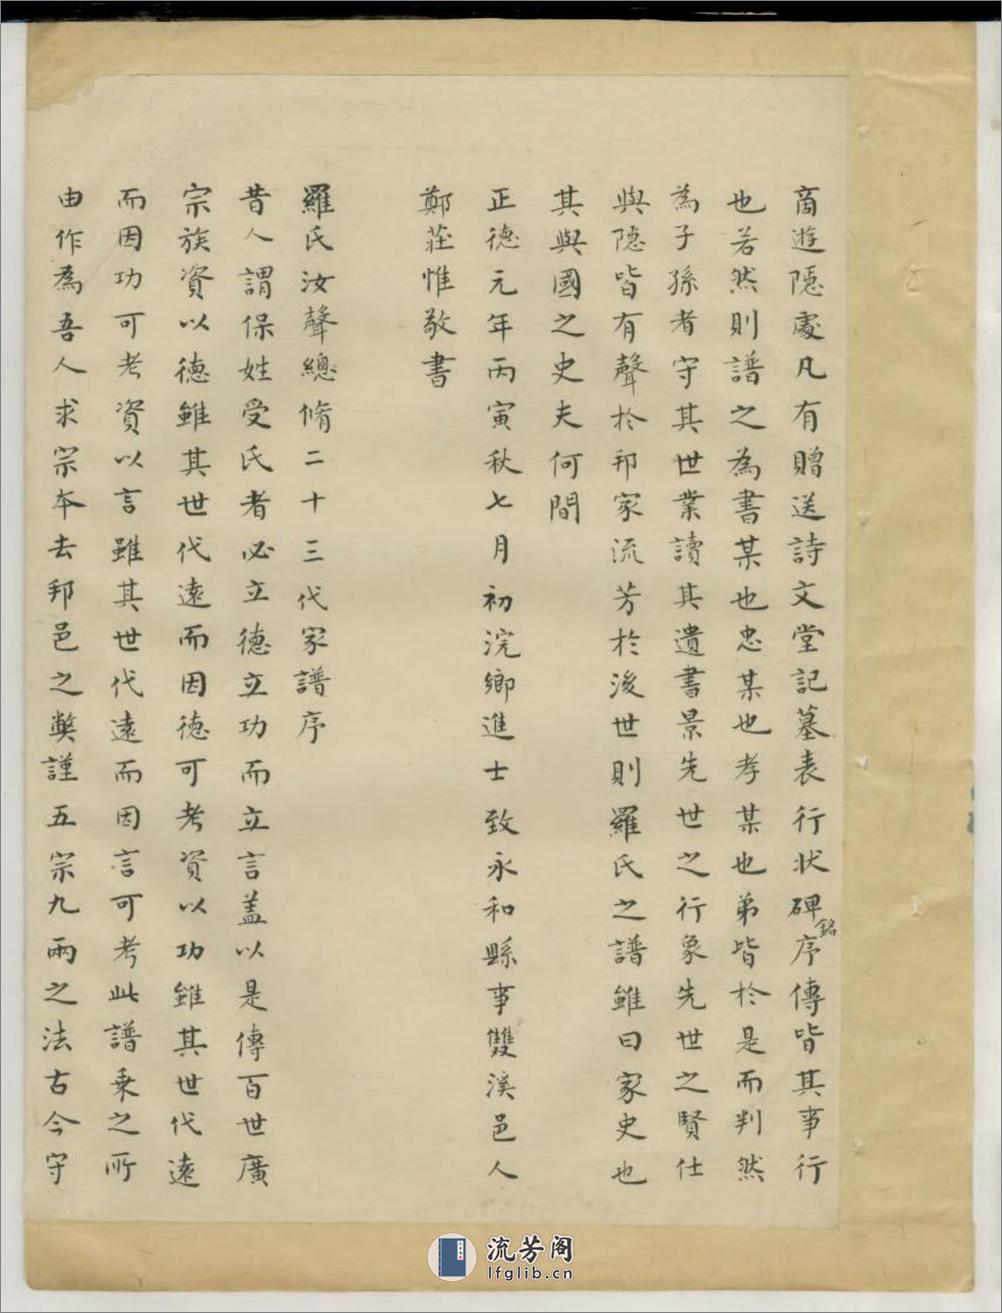 商遊隱處凡有贈送詩文堂記墓表行狀碑銘序傳皆其事行
也若然則譜之為書某也忠某也孝某也弟皆於是而判然
為子孫者守其世業讀其遺書景先世之行象先世之賢仕
與隱皆有聲於邦家流芳於後世則羅氏之譜雖曰家史也
其與國之史夫何間
正德元年丙寅秋七月初浣鄉進士致永和縣事雙溪邑人
鄭莊惟敬書
羅氏汝聲總脩二十三代家譜序
昔人謂保姓受氏者必立德立功而立言蓋以是傳百世廣
宗族資以德雖其世代遠而因德可考資以功雖其世代遠
而因功可考資以言雖其世代遠而因言可考此譜乗之所
由作為吾人求宗本去邦邑之獘謹五宗九兩之法古今守
流芳阁
lfglib.cn